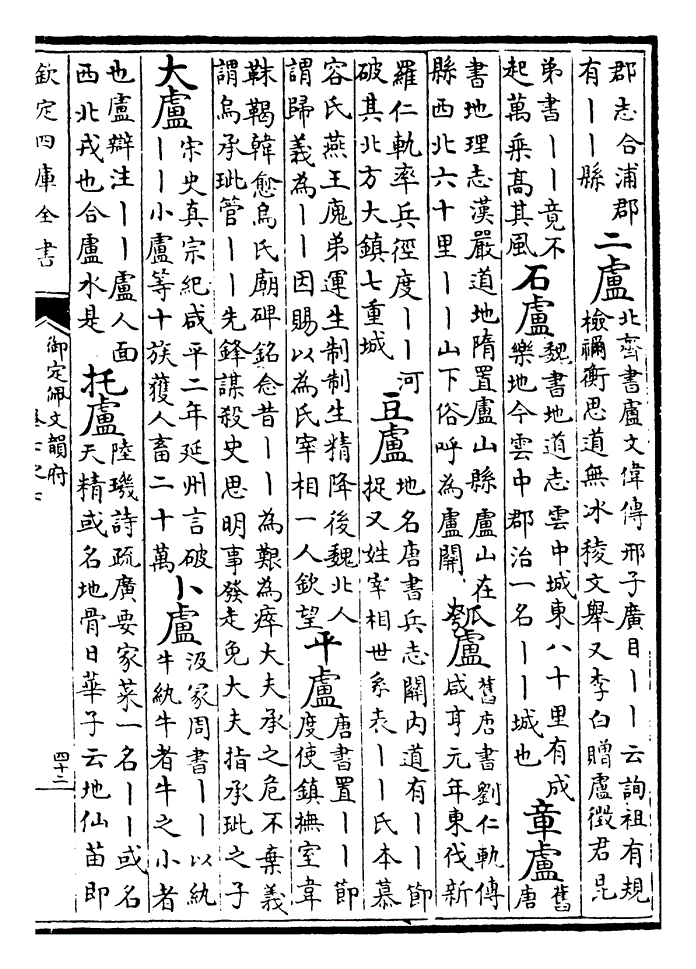 郡志合浦郡
有丨丨縣
二盧
北齊書盧文偉傳邢子廣目丨丨云詢祖有規
檢禰衡思道無冰稜文舉又李白贈盧徵君昆
弟書丨丨竟不
起萬乘髙其風
石盧
魏書地道志雲中城東八十里有成
樂地今雲中郡治一名丨丨城也
章盧
舊
唐
書地理志漢嚴道地隋置盧山縣盧山在
縣西北六十里丨丨山下俗呼為盧關
瓠盧
舊唐書劉仁軌傳
咸亨元年東伐新
羅仁軌率兵徑度丨丨河
破其北方大鎮七重城
豆盧
地名唐書兵志關内道有丨丨節
捉又姓宰相世系表丨丨氏本慕
容氏燕王廆弟運生制制生精降後魏北人
謂歸義為丨丨因賜以為氏宰相一人欽望
平盧
唐書置丨丨節
度使鎮撫室韋
靺鞨韓愈烏氏廟碑銘念昔丨丨為艱為瘁大夫承之危不棄義
謂烏承玼管丨丨先鋒謀殺史思明事發走免大夫指承玼之子
大盧
宋史真宗紀咸平二年延州言破
丨丨小盧等十族獲人畜二十萬
卜盧
汲冢周書丨丨以紈
牛紈牛者牛之小者
也盧辯注丨丨盧人面
西北戎也合盧水是
托盧
陸璣詩疏廣要家菜一名丨丨或名
天精或名地骨日華子云地仙苗即
欽定四庫全書
御定佩文韻府
四十二